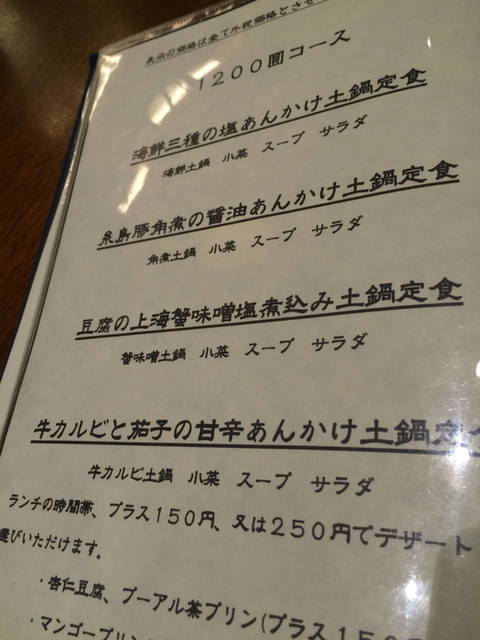 表示の価格は全て外税価格とさせ
1200圓コース
海鮮三種の塩あんかけ土鍋定食
海鮮土鍋 小菜 スープ サラダ
糸島豚角煮の醤油あんかけ土鍋定食
角煮土鍋 小菜 スープ サラダ
豆腐の上海蟹味噌塩煮込み土鍋定食
蟹味噌土鍋 小菜 スープ サラダ
牛カルビと茄子の甘辛あんかけ土鍋定
牛カルビ土鍋 小菜 スープ サラダ
ランチの時間帯、プラス150円、又は250円でデザート
選びいただけます。
・杏仁豆腐、プーアル茶プリン(プラス150
・マンゴープリン